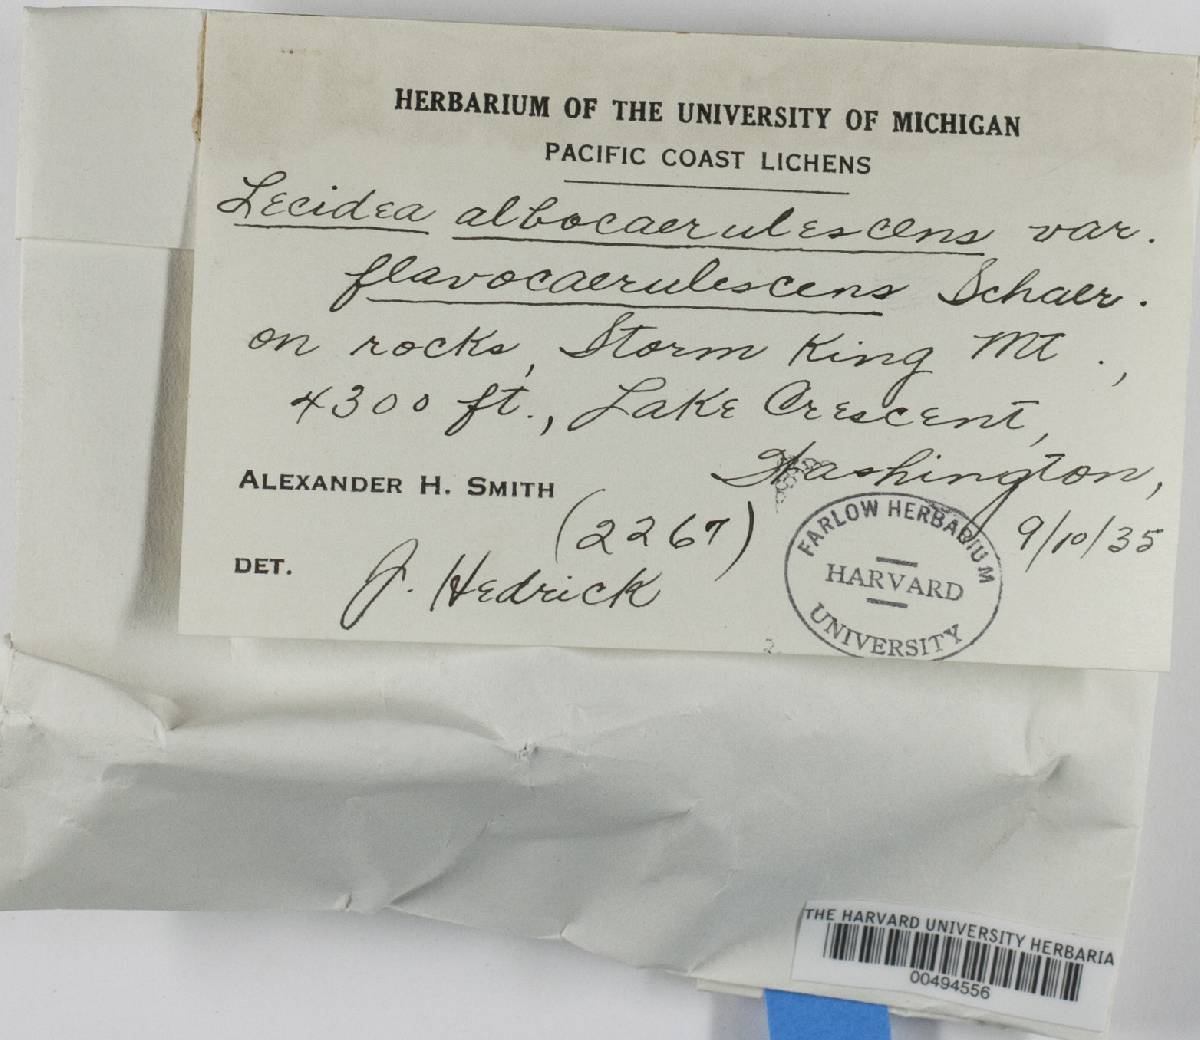 HERBARIUM OF THE UNIVERSITY OF MICHIGAN
PACIFIC COAST LICHENS
Lecidea albocaerulescens var.
flavocaerulescens Schaer.
on rocks, Storm King Mt.,
4300 ft., Lake Crescent,
Washington,
ALEXANDER H. SMITH
(2267)
9/10/35
DET. J. Hedrick
FARLOW HERBARIUM
HARVARD
UNIVERSITY
THE HARVARD UNIVERSITY HERBARIA
00494556